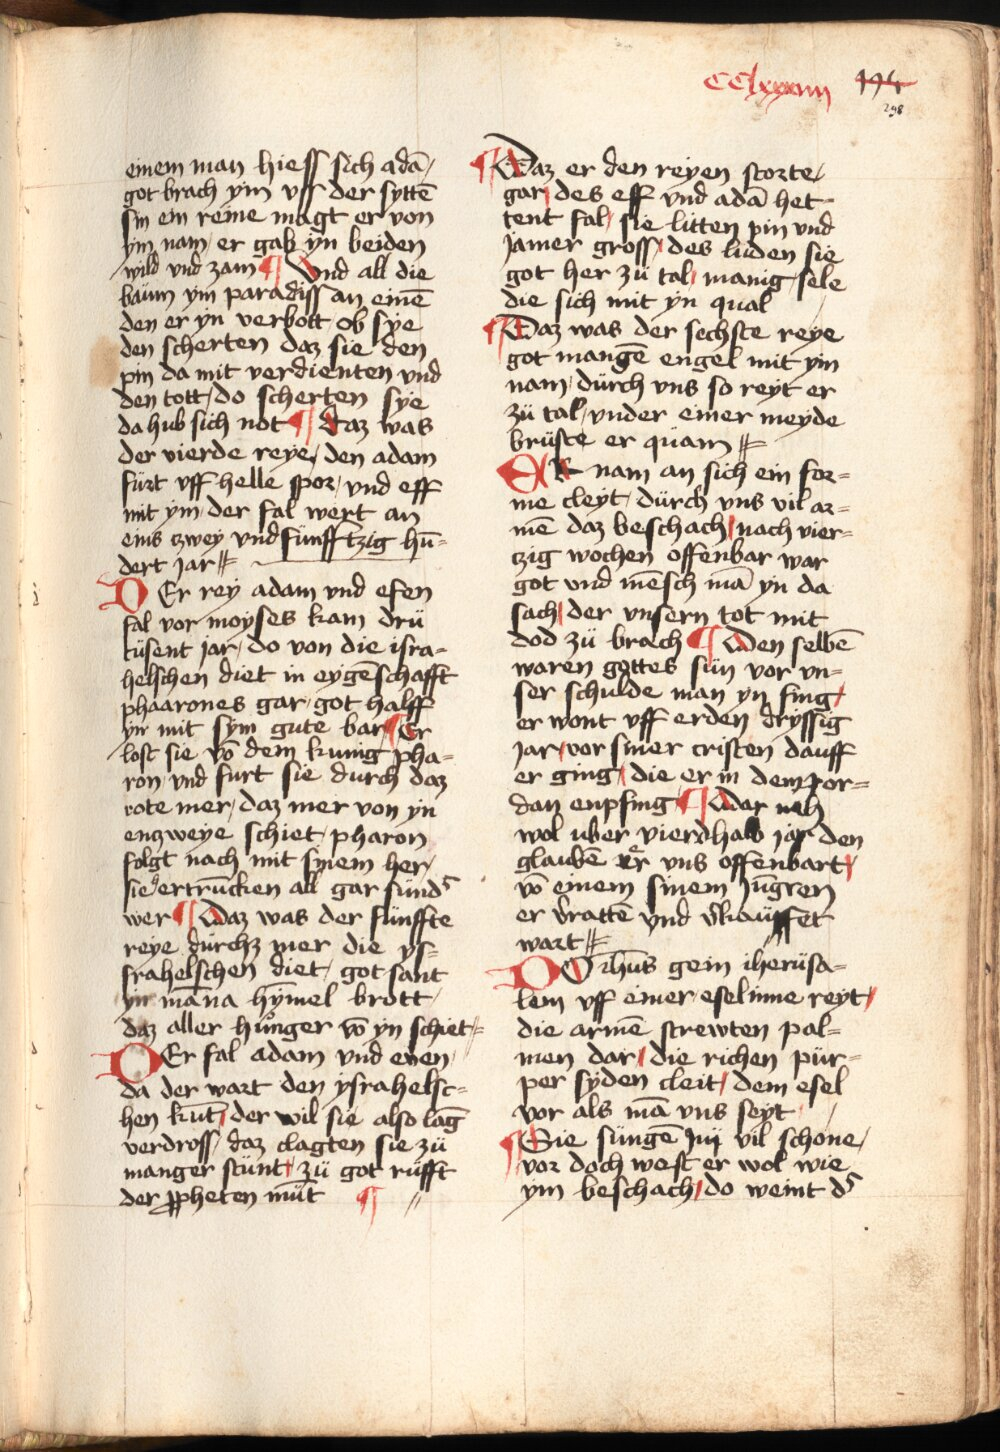 CClxxxxiiii 194
298
einem man hiess sich adā /
got brach ym vss der syttē
sin ein reine magt er von
ym nam / er gab yn beiden
wild vnd zam ¶ Vnd all die
baüm ym paradiss an einē
den er yn verbott / ob sye
den scherten daz sie den
pin da mit verdienten vnd
den tott / do scherten sye
da hub sich not ¶ Daz was
der vierde reye / den adam
fürt vff helle spor / vnd eff
mit ym / der fal wert an
eins zwey vnd fünfftzig hū=
dert jar //
DEr rey adam vnd efen
fal vor moyses kam drü
tüsent jar / do von die isra=
helschen diet in eygēschafft
phaarones gar / got halff
yn mit sym gute bar ¶ Er
lost sie vō dem kunig pha=
ron vnd furt sie durch daz
rote mer / daz mer von yn
enzweye schiet / pharon
folgt nach mit sinem her /
sie ertruncken all gar sünd'
wer ¶ Daz was der fünffte
reye dürchz mer die ys=
srahelschen diet / got sant
yn māna hymel brott /
daz aller hunger vō yn schiet //
DEr fal adam vnd even /
da der wart den ysrahelsc=
hen kūt / der wil sie also lāg
verdross / daz clagten sie zü
manger stünt / zü got rüfft
der ppheten müt ¶ //
¶ Daz er den reyen storte /
gar / des eff vnd adā het=
tent fal / sie litten pin vnd
jamer gross / des luden sie
got her zü tal / manig sele
die sich mit yn qual
¶ Daz was der sechste reye
got mangē engel mit ym
nam / dürch vns so reyt er
zü tal / vnder einer meyde
brüste er quam //
ER nam an sich ein for=
me cleyt / dürch vns vil ar=
mē daz beschach / nach vier=
tzig wochen offenbar war
got vnd mēsch mā yn da
sach / der vnsern tot mit
dod zü brach ¶ Den selbē
waren gottes sün vor vn=
ser schulde man yn fing /
er wont vff erden dryssig
jar / vor siner cristen dauff
er ging / die er in dem jor=
dan enpfing ¶ Dar neh
wol uber vierdhalb jar den
glaubē er vns offenbart /
vō einem sinem jūgren
er vrattē vnd vkauffet
wart //
DO ihūs gein iherüsa=
lem vff einer eselinne reyt /
die armē strewten pal=
men dar / die richen pür=
per syden cleit / dem esel
vor als mā vns seyt /
¶ Sie süngē ym vil schone /
vor doch west er wol wie
ym beschach / do weint d'